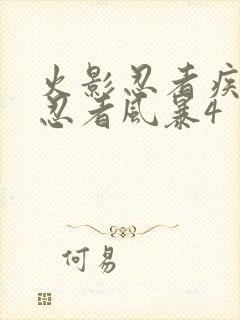 火影忍者疾
忍者风暴4
何易